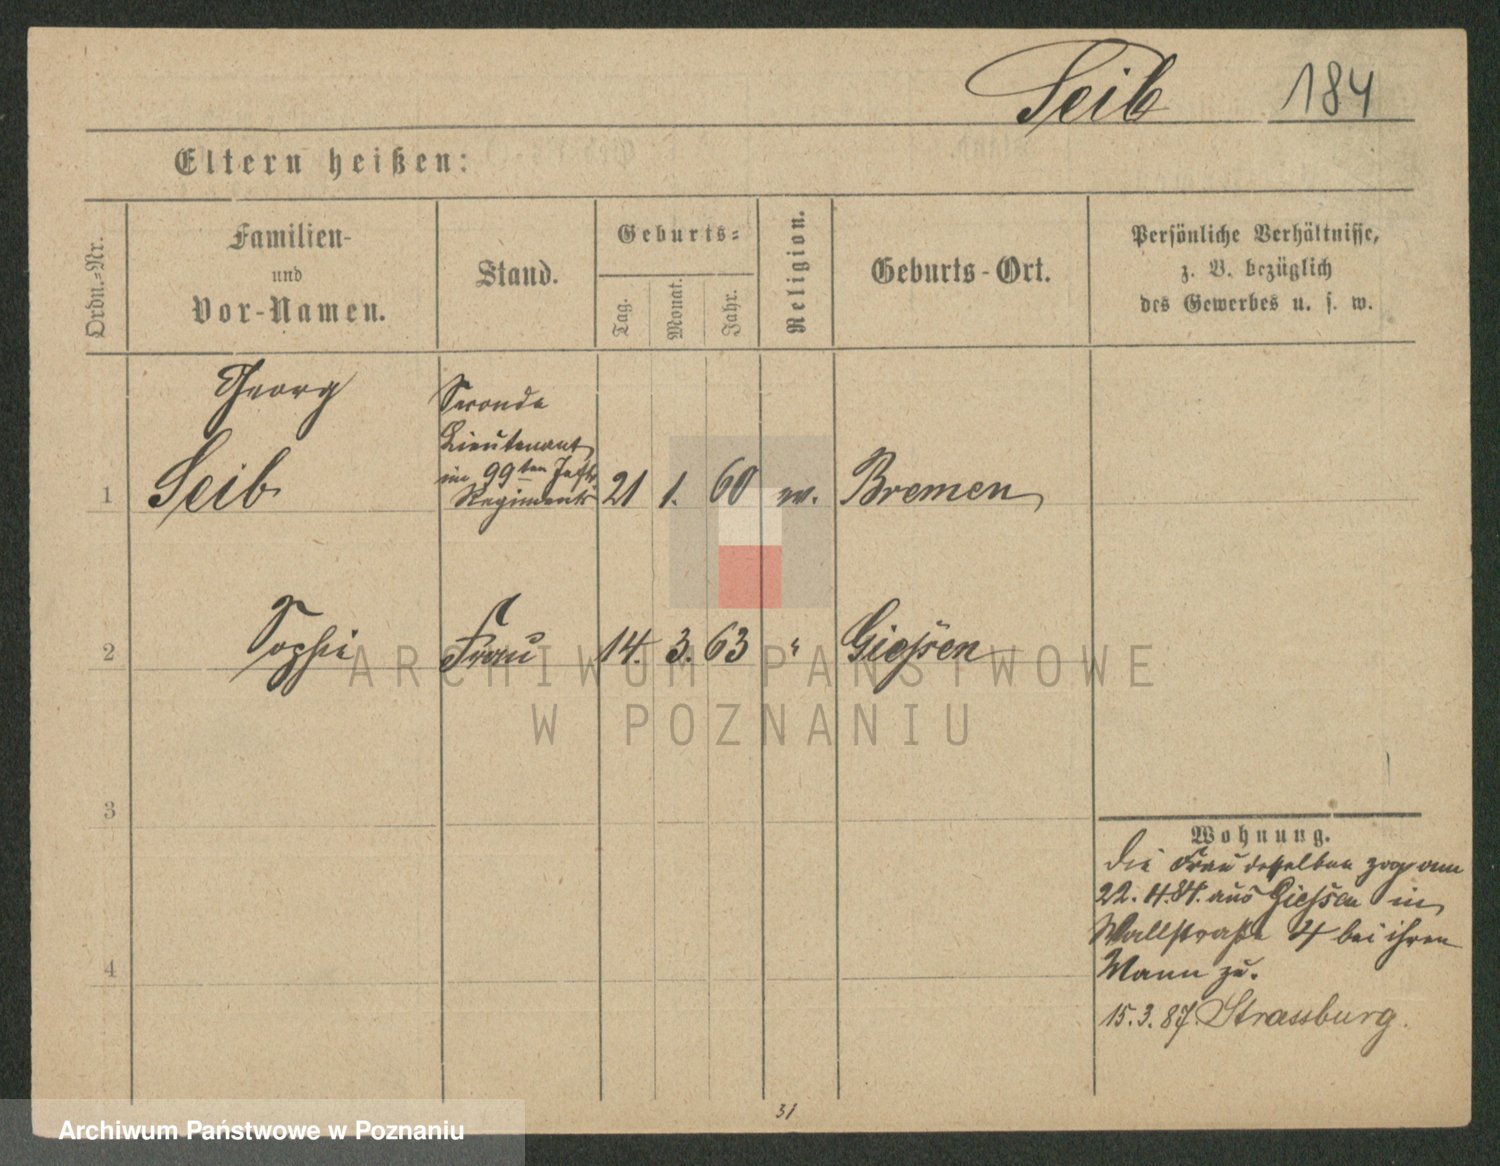 Seib 184
Eltern heißen:
Ordn.-Nr.
Familien-
und
Vor-Namen.
Stand.
Geburts-
Tag.
Monat.
Jahr.
Religion.
Geburts-Ort.
Persönliche Verhältnisse,
z. B. bezüglich
des Gewerbes u. s. w.
Georg
Seib
Seconde
Lieutenant
im 99ten Inftr
Regiment
1 21 1. 60 ev. Bremen
2 Sophie Frau 14. 3. 63 " Giessen
ARCHIWUM PAŃSTWOWE
W POZNANIU
3
4
Wohnung.
Die Frau desselben zog am
22. 4. 84. aus Giessen in
Wallstraße 4 bei ihren
Mann zu.
15. 3. 87. Strassburg.
31
Archiwum Państwowe w Poznaniu